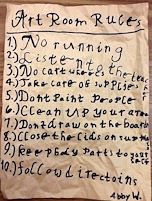 Art Room Rules
1.) No running
2.) Listen to the teacher
3.) No cartwheels
4.) Take care of supplies
5.) Dont Paint People
6.) Clean up your area
7.) Dont draw on the board
8.) Close the lids on supplies
9.) Keep body parts to your self
10.) follow directoins
Abby W.